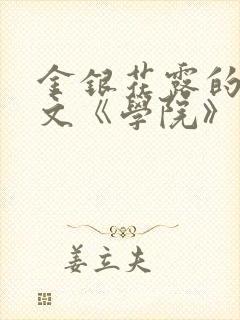 金銀花露的
文《學院》
姜立夫